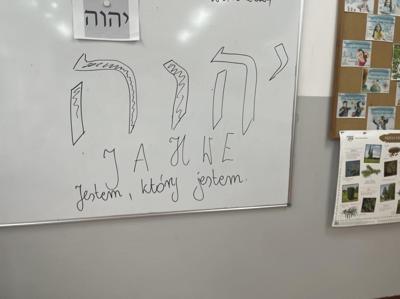 יהוה
יהוה
JAHWE
Jestem, który jestem.